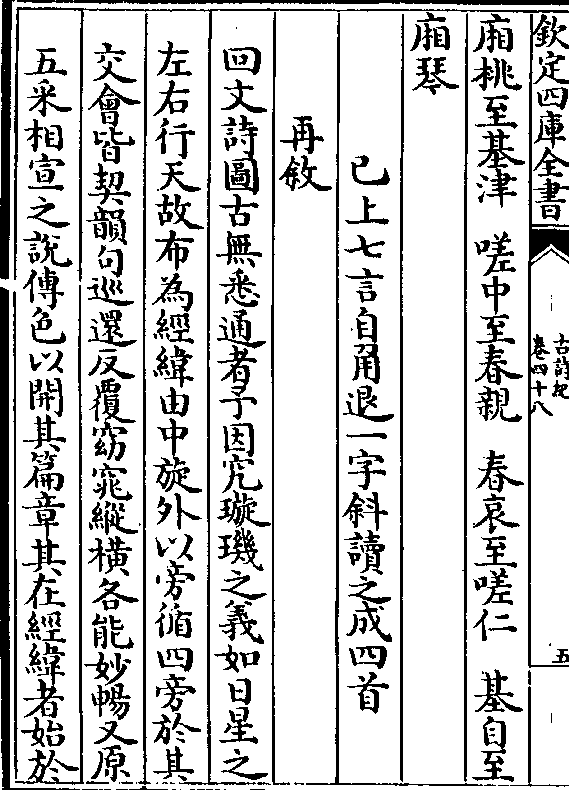 欽定四庫全書
古詩紀
卷四十八
五
廂桃至基津　嗟中至春親　春哀至嗟仁　基自至
廂琴
已上七言自角退一字斜讀之成四首
再敘
回文詩圖古無悉通者予因究璇璣之義如日星之
左右行天故布為經緯由中旋外以旁循四旁於其
交會皆契韻句巡還反覆窈窕縱横各能妙暢又原
五采相宣之說傅色以開其篇章其在經緯者始於